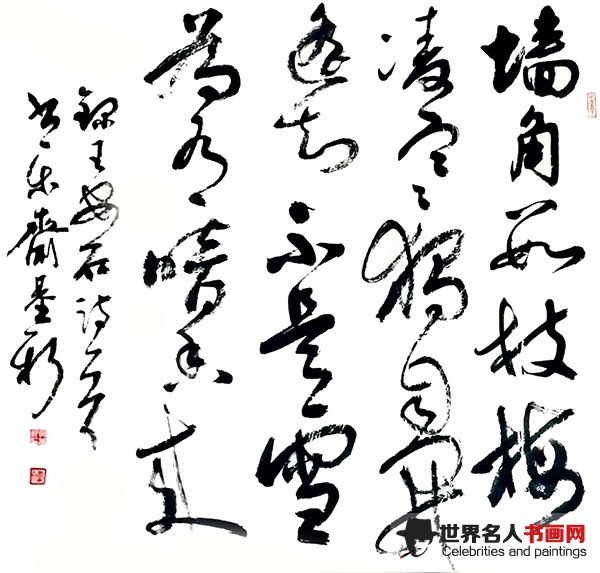 墙角數枝梅
凌寒獨自開
遥知不是雪
為有暗香來
錄王安石詩一首
一樂齋
世界名人书画网
Celebrities and paintings